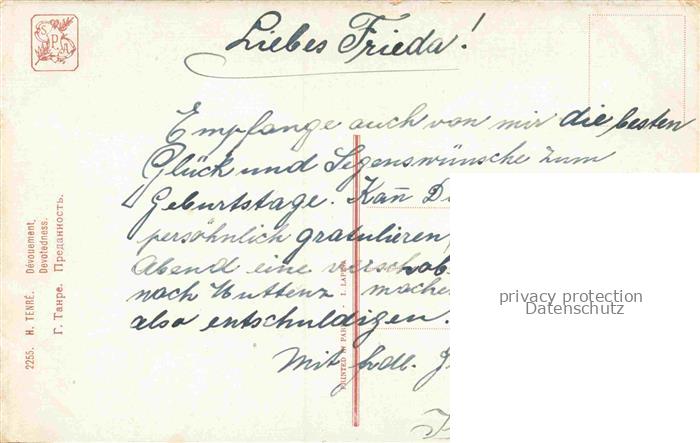 Liebes Frieda!
Empfange auch von mir die besten
Glück und Segenswünsche zum
Geburtstage. Kan̄ D
persöhnlich gratulieren,
Abend eine verschob
nach Muttenz mache
also entschuldigen.
Mit frdl. G
S.P.A
2255. H. TENRÉ. Dévouement.
Devotedness.
Г. Танре. Преданность.
PRINTED IN PARIS - I. LAPINA
privacy protection
Datenschutz